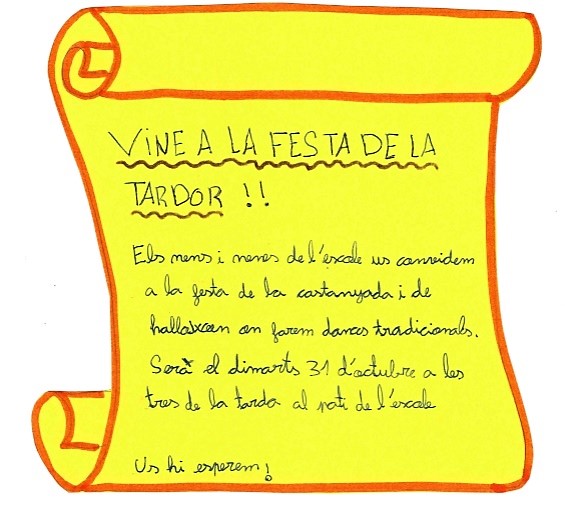 VINE A LA FESTA DE LA
TARDOR !!
Els nens i nenes de l'escola us convidem
a la festa de la castanyada i de
halloween on farem danses tradicionals.
Serà el dimarts 31 d'octubre a les
tres de la tarda al pati de l'escola
Us hi esperem!